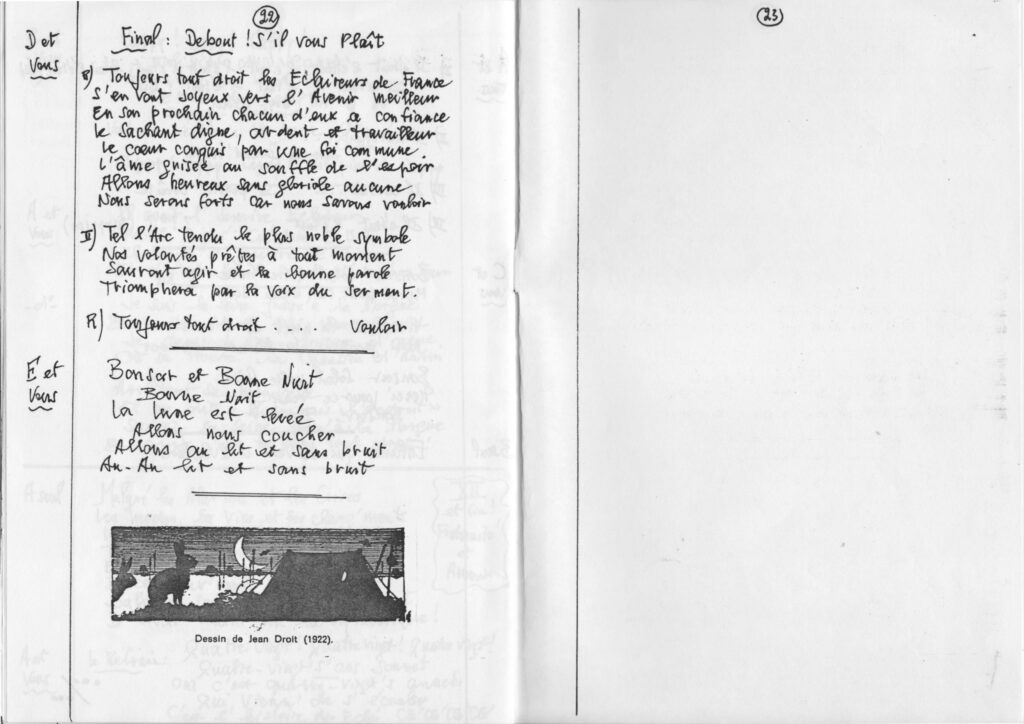 22
D et Vous
Final : Debout ! S'il vous Plaît
R) Toujours tout droit les Eclaireurs de France
S'en vont joyeux vers l'Avenir meilleur
En son prochain chacun d'eux a confiance
le sachant digne, ardent et travailleur
Le cœur conquis par une foi commune.
L'âme grisée au souffle de l'espoir
Allons heureux sans gloriole aucune
Nous serons forts car nous savons vouloir
II) Tel l'Arc tendu le plus noble symbole
Nos volontés prêtes à tout moment
Sauront agir et la bonne parole
Triomphera par la voix du serment.
R) Toujours tout droit ..... Vouloir
E et Vous
Bonsoir et Bonne Nuit
Bonne Nuit
La lune est levée
Allons nous coucher
Allons au lit et sans bruit
Au-Au lit et sans bruit
Dessin de Jean Droit (1922).
23